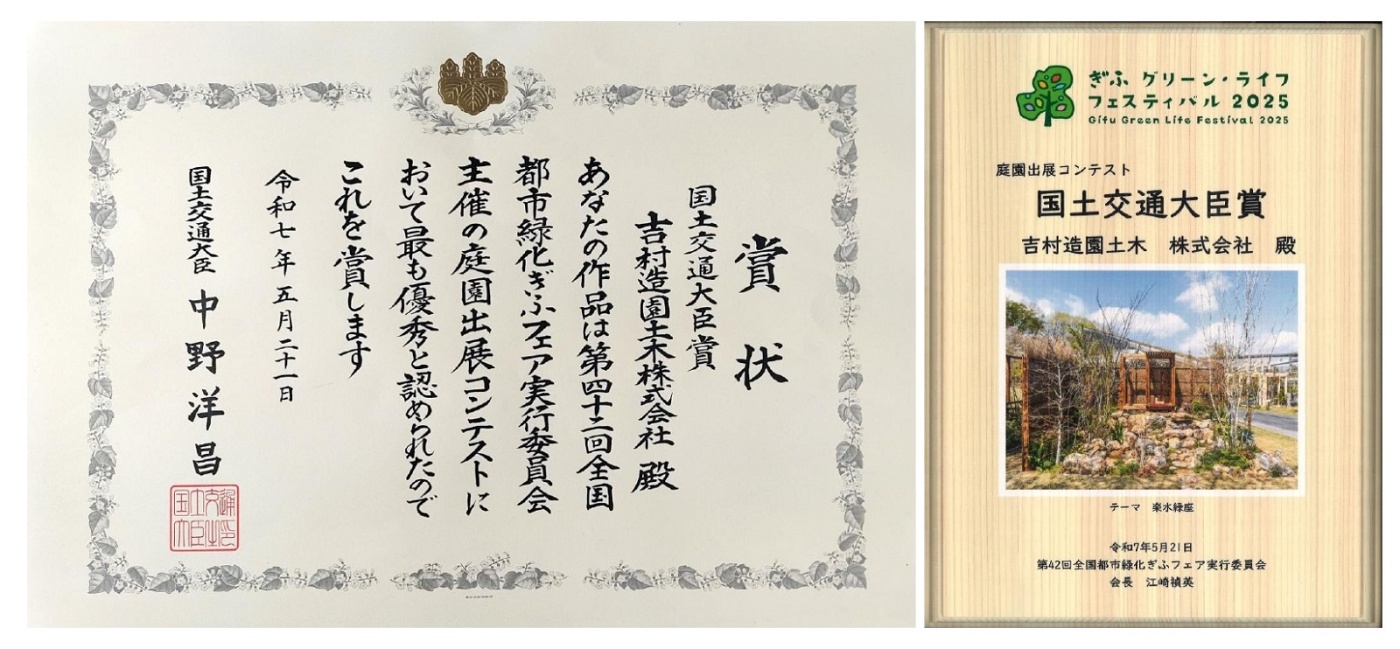 賞状
国土交通大臣賞
吉村造園土木株式会社 殿
あなたの作品は第四十二回全国
都市緑化ぎふフェア実行委員会
主催の庭園出展コンテストに
おいて最も優秀と認められたので
これを賞します
令和七年五月二十一日
国土交通大臣 中野洋昌
国土交通大臣之印
ぎふ グリーン・ライフ
フェスティバル 2025
Gifu Green Life Festival 2025
庭園出展コンテスト
国土交通大臣賞
吉村造園土木 株式会社 殿
テーマ 楽水緑座
令和7年5月21日
第42回全国都市緑化ぎふフェア実行委員会
会長 江崎禎英